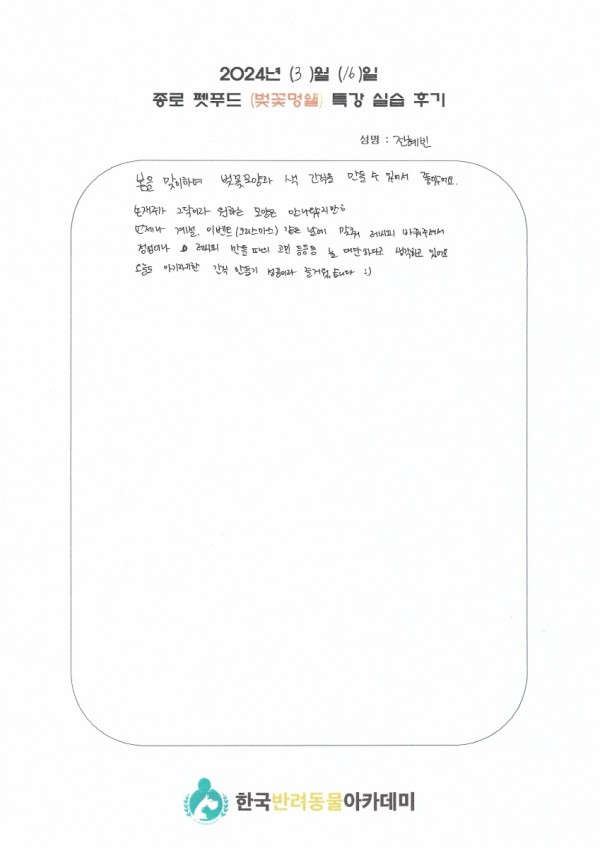 2024년 (3)월 (16)일
종로 펫푸드 (벚꽃멍쉘) 특강 실습 후기
성명 : 전혜빈
봄을 맞이하며 벚꽃모양과 색 간식을 만들 수 있어서 좋았어요.
손재주가 그닥이라 원하는 모양은 안나왔지만ㅎ
언제나 계절, 이벤트(크리스마스) 같은 날에 맞춰 레시피 바꿔주셔서
정성이나 레시피 만들 때의 고민 등등등 늘 대단하다고 생각하고 있어요
오늘도 아기자기한 간식 만들기 성공이라 즐거웠습니다 :)
한국반려동물아카데미